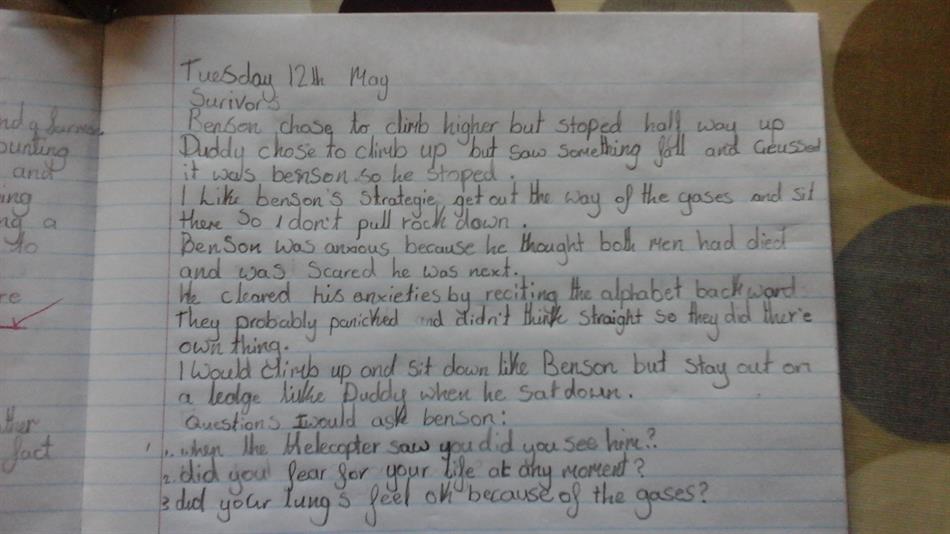 Tuesday 12th May
Surivor's
Benson chose to climb higher but stoped half way up
Duddy chose to climb up but saw something fall and Geussed
it was benson so he stoped.
I Like benson's Strategie, get out the way of the gases and sit
there so I don't pull rock down.
BenSon was anxious because he thought both men had died
and was scared he was next.
He cleared his anxieties by reciting the alphabet backward
They probably panicked and didn't think straight so they did ther'e
own thing.
I Would climb up and sit down like Benson but stay out on
a ledge like Duddy when he sat down.
Questions I would ask benson:
1. when the Helecopter saw you did you see him?
2. did you fear for your life at any moment?
3 did your lung's feel ok because of the gases?
and
ounting
and
ing
ng a
to
re
ther
fact